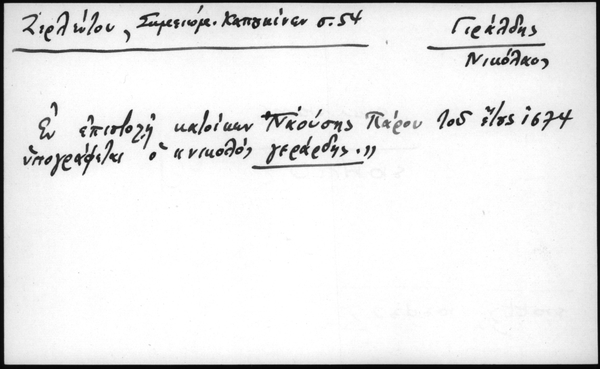 Ζερλέντου, Σημειώμ. Καπουκίνων σ. 54
Γιράλδης
Νικόλαος
Ἐν ἐπιστολῇ κατοίκων Ναούσης Πάρου τοῦ ἔτους 1674
ὑπογράφεται ὁ κνικολός γεράρδης.,,